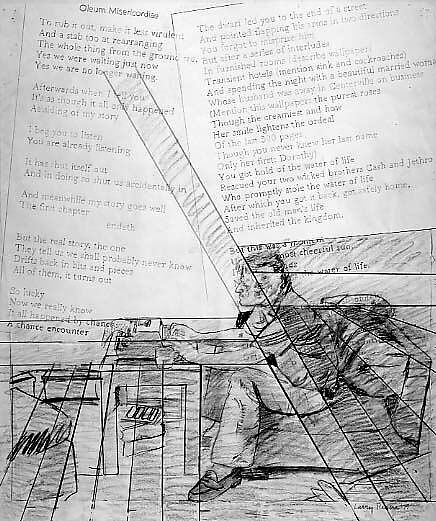 Oleum Misericordiae
To rub it out, make it less virulent
And a stab too at rearranging
The whole thing from the ground up.
Yes we were waiting just now
Yes we are no longer waiting.
Afterwards when I tell you
It's as though it all only happened
As siding of my story
I beg you to listen
You are already listening
It has shut itself out
And in doing so shut us accidentally in
And meanwhile my story goes well
The first chapter
endeth
But the real story, the one
They tell us we shall probably never know
Drifts back in bits and pieces
All of them, it turns out
So lucky
Now we really know
It all happened by chance:
A chance encounter
The dwarf led you to the end of a street
And pointed flapping his arms in two directions
You forgot to misprize him
But after a series of interludes
In furnished rooms (describe wallpaper)
Transient hotels (mention sink and cockroaches)
And spending the night with a beautiful married woman
Whose husband was away in Centerville on business
(Mention this wallpaper: the purest roses
Though the creamiest and how
Her smile lightens the ordeal
Of the last 500 pages
Though you never knew her last name
Only her first: Dorothy)
You got hold of the water of life
Rescued your two wicked brothers Cash and Jethro
Who promptly stole the water of life
After which you got it back, got safely home,
Saved the old man's life
And inherited the kingdom.
But this was a moment
most cheerful sun,
water of life.
Larry Rivers